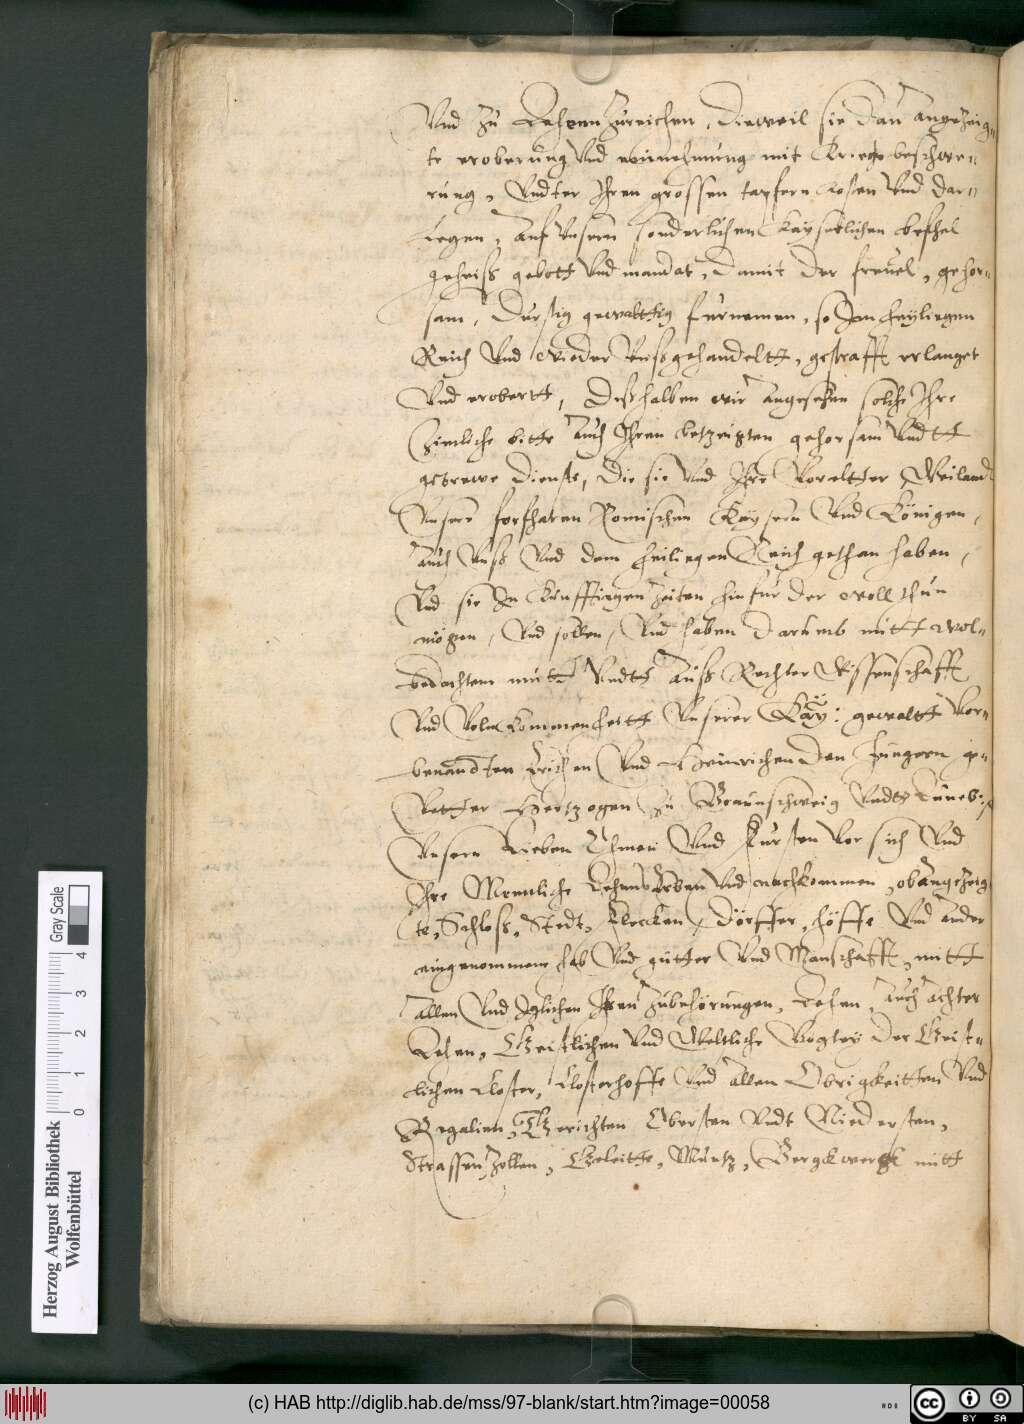 Vnd zu Lehenn zureichen, Dieweil sie dan angezeig-
te eroberung vnd einnehmung mit Kriegs beschwe-
rung, Vndter Ihren grossen tapfern kosten vnd dar-
legen, auf vnsern sonderlichen Kayserlichen befehel
geheiss gebott vnd mandat, damit der freuel, gehor-
sam, durstig gewalttig furnemen, so dem heyligen
Reich vnd wieder vnss gehandeltt, gestrafft erlanget
Vnd erobertt, desshalben wir angesehen solche Ihre
Zimliche bitte auch Ihren bestendigen gehorsam vndtt
getrewe dienste, die sie vnd Ihre Voreltter Weiland
Vnsern forfharen Romischen Kaysern vnd Königen,
auch vnss vnd dem heiligen Reich gethan haben,
Vnd sie In kunfftigen zeiten hinfur der woll thun
mögen, Vnd sollen, Vnd haben darumb mitt wol-
bedachtem mutt vndtt auss Rechter Wissenschafft
Vnd Volnkommenheitt Vnserer Kay: gewaltt vor-
benandten Erichen vnd Heinrichen den Jungern ge-
Vetter Hertzogen zu Braunschweig vndt Luneb:
Vnsern Lieben Ohmen vnd Fursten vor sich vnd
Ihre Menliche Lehens Erben vnd nachkommen, obangezeig-
te, Schloss, Stedt, Flecken, Dörffer, höffe vnd ander
eingenommene hab vnd gütter vnd Manschafft, mitt
allen vnd Iglichen Ihren zubehörungen, Lehen, auch achter
Lehen, Geistlichen vnd Weltliche Vogtey der Geist-
lichen Closter, Closterhoffe vnd allen Obrigkeitten vnd
Regalien, Gerichten Obersten vndt Niedersten,
Strassen, Zollen, Geleitte, Muntz, Bergkwergk mitt
Herzog August Bibliothek
Wolfenbüttel
0 1 2 3 4
Gray Scale
(c) HAB http://diglib.hab.de/mss/97-blank/start.htm?image=00058
cc BY SA